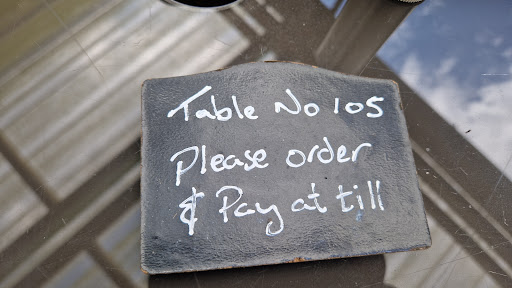 Table No 105
Please order
& Pay at till